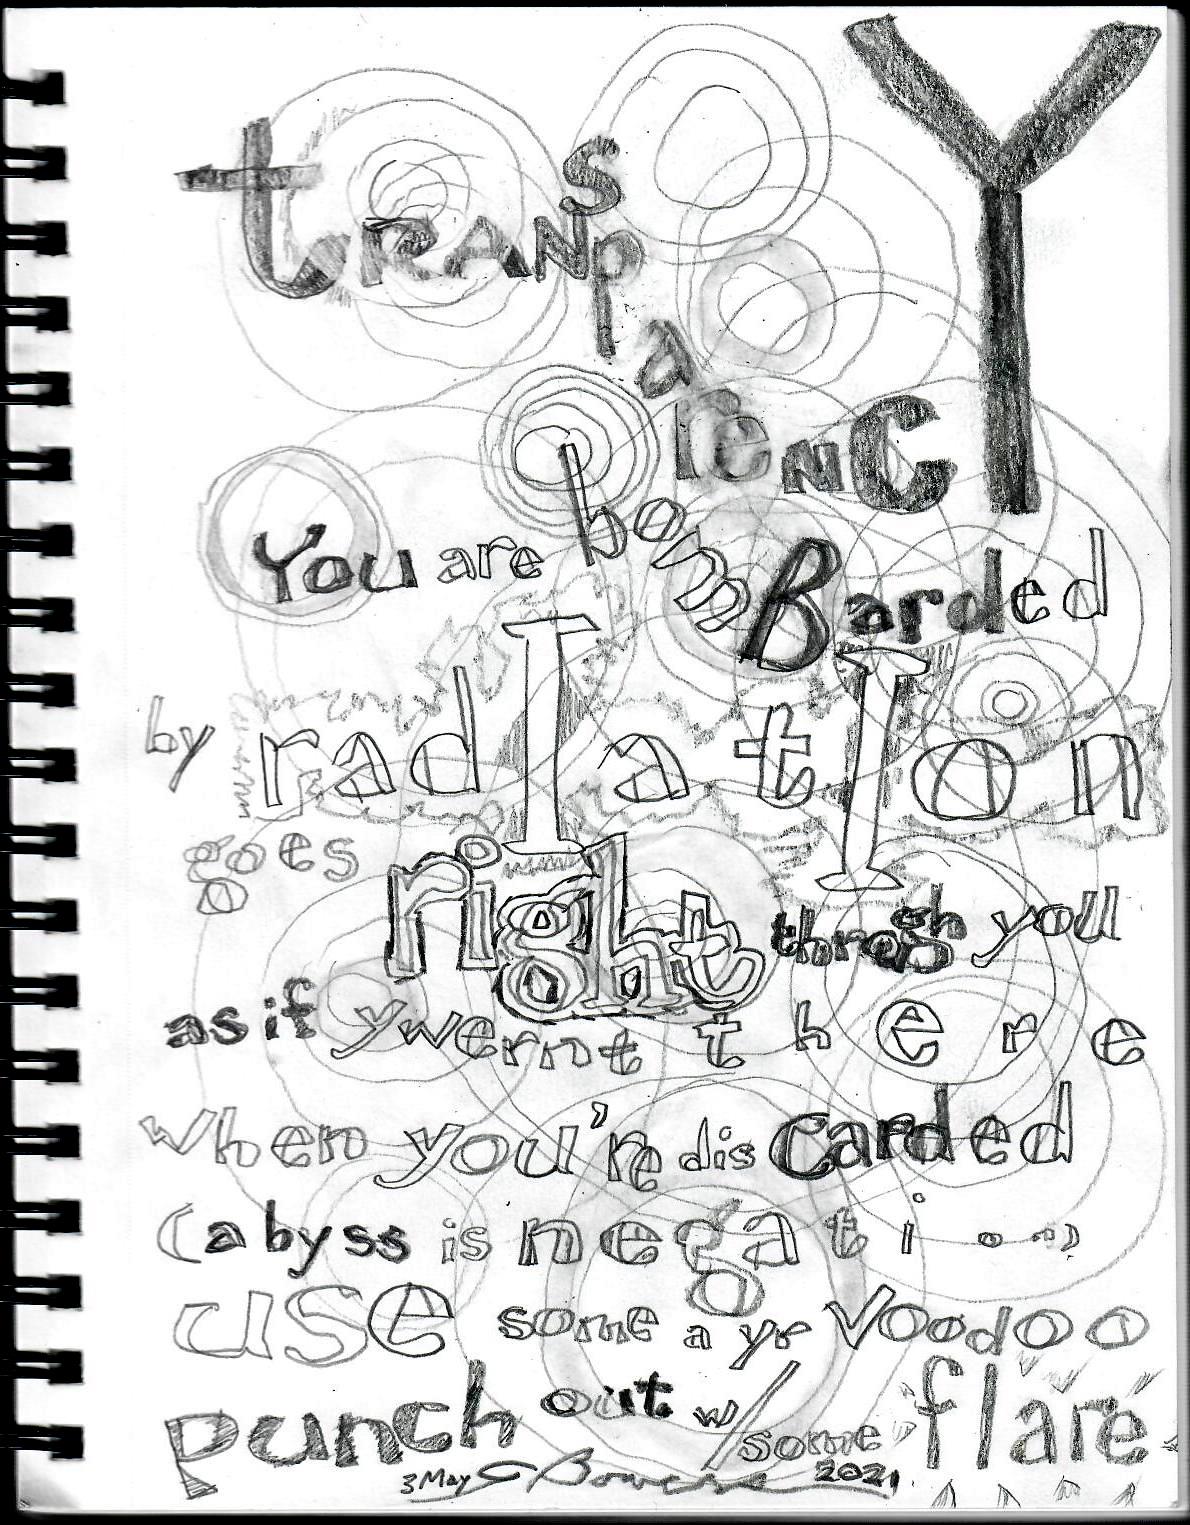 tRANSpArencY
You are bomBarded
by radIatIon
goes right throgh you
as if ywernt there
when you're disCarded
(abyss is negation)
use some a yr voodoo
punch out w/some flare
3 May C Bowers 2021